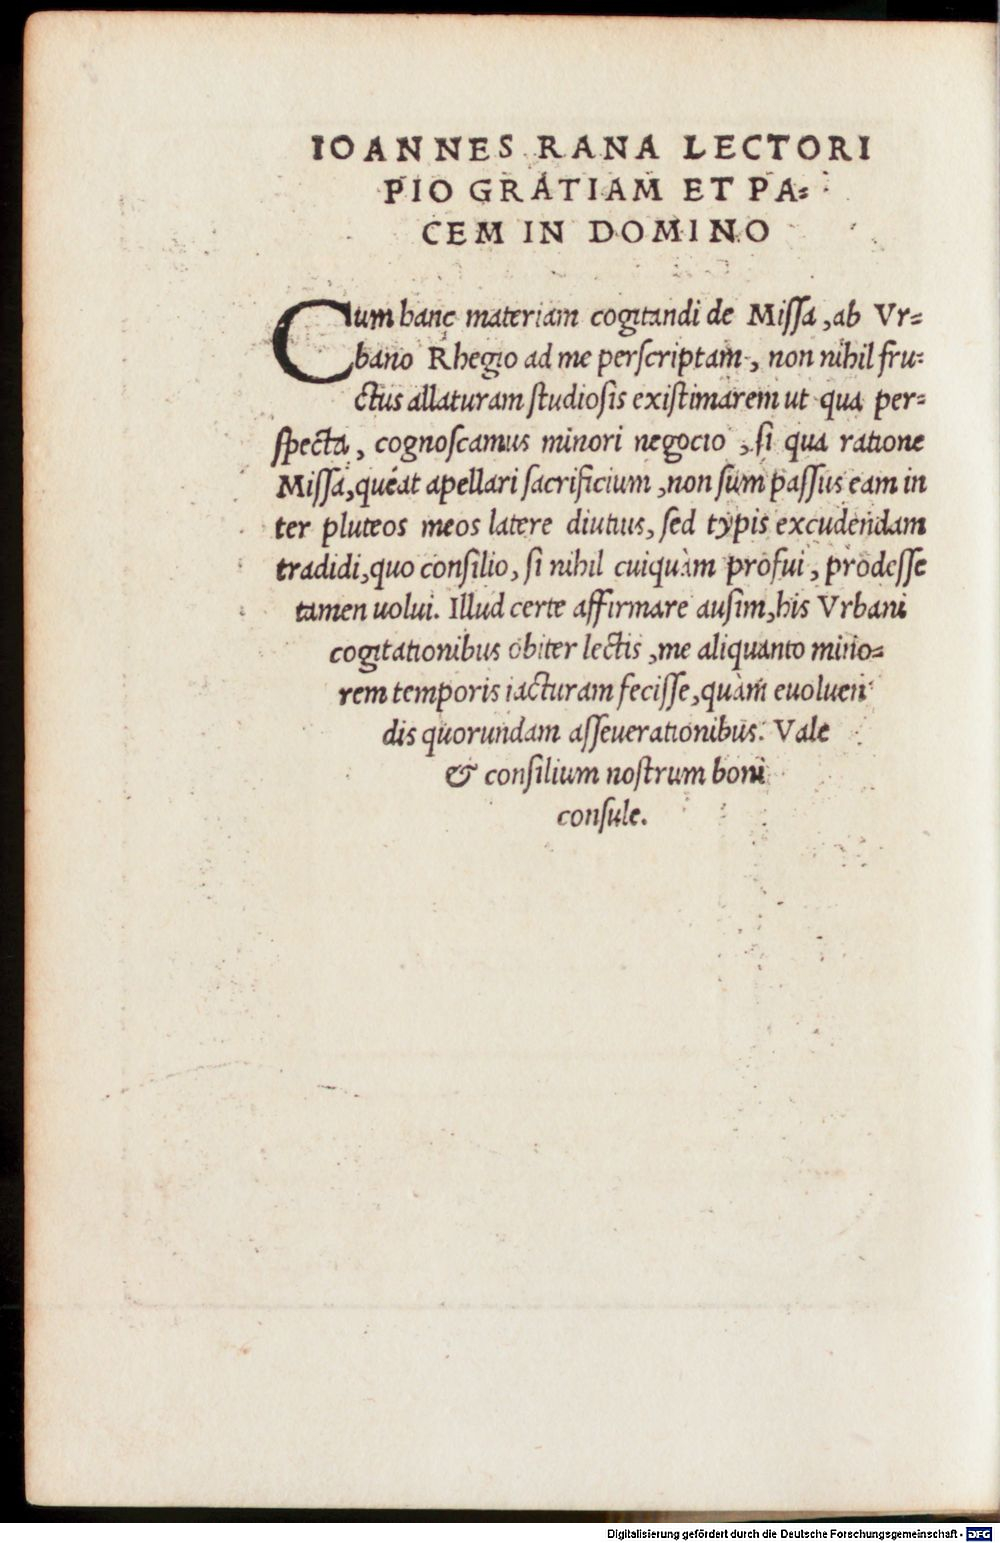 IOANNES RANA LECTORI
PIO GRATIAM ET PA⸗
CEM IN DOMINO
Cum hanc materiam cogitandi de Miſſa, ab Vr⸗
bano Rhegio ad me perſcriptam, non nihil fru⸗
ctus allaturam ſtudioſis exiſtimarem ut qua per⸗
ſpecta, cognoſcamus minori negocio, ſi qua ratione
Miſſa, queat apellari ſacrificium, non ſum paſſus eam in
ter pluteos meos latere diutius, ſed typis excudendam
tradidi, quo conſilio, ſi nihil cuiquàm profui, prodeſſe
tamen uolui. Illud certe affirmare auſim, his Vrbani
cogitationibus obiter lectis, me aliquanto mino⸗
rem temporis iacturam feciſſe, quàm euoluen
dis quorundam aſſeuerationibus. Vale
& conſilium noſtrum boni
conſule.
Digitalisierung gefördert durch die Deutsche Forschungsgemeinschaft - DFG